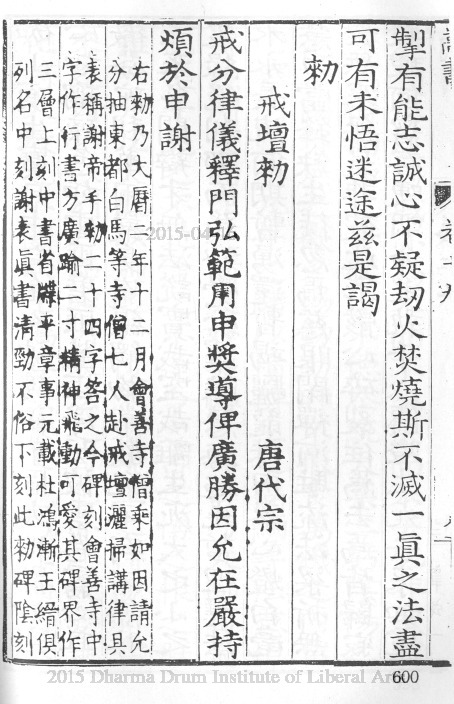 掣有能志誠心不疑刼火焚燒斯不滅一眞之法盡
可有未悟迷途兹是謁
勅
戒壇勅　唐代宗
戒分律儀釋門弘範用申奬導俾廣勝因允在嚴持
煩於申謝
右勅乃大曆二年十二月會善寺僧乘如因請允
分抽東都白馬等寺僧七人赴戒壇灑掃講律具
表稱謝帝手勅二十四字答之今碑刻會善寺中
字作行書方廣踰二寸精神飛動可愛其碑界作
三層上刻中書省牒平章事元載杜鴻漸王縉俱
列名中刻謝表眞書清勁不俗下刻此勅碑陰刻
2015-04
2015 Dharma Drum Institute of Liberal Ar
600